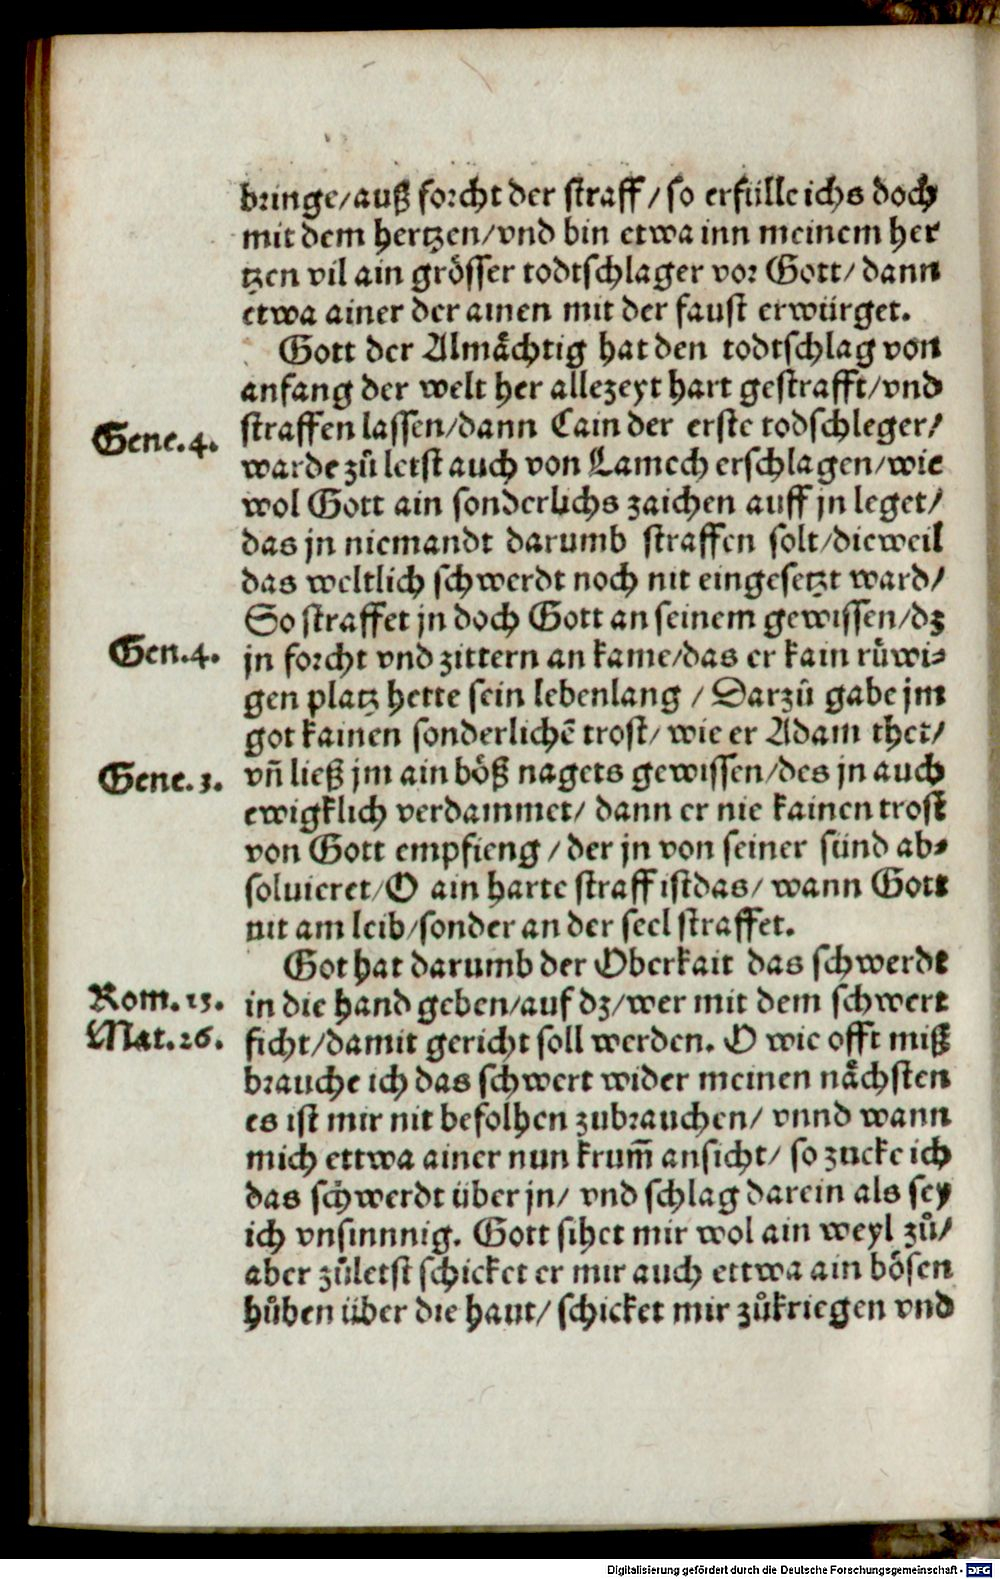 bringe/auß forcht der straff/so erfülle ichs doch
mit dem hertzen/vnd bin etwa inn meinem her
tzen vil ain grösser todtschlager vor Gott/dann
etwa ainer der ainen mit der faust erwürget.
Gott der Almåchtig hat den todtschlag von
anfang der welt her allezeyt hart gestrafft/vnd
Gene.4. straffen lassen/dann Cain der erste todschleger/
warde zů letst auch von Lamech erschlagen/wie
wol Gott ain sonderlichs zaichen auff jn leget/
das jn niemandt darumb straffen solt/dieweil
das weltlich schwerdt noch nit eingesetzt ward/
So straffet jn doch Gott an seinem gewissen/dz
Gen.4. jn forcht vnd zittern an kame/das er kain růwi-
gen platz hette sein lebenlang / Darzů gabe jm
got kainen sonderlichē trost/ wie er Adam thet/
Gene.3. vñ ließ jm ain böß nagets gewissen/des jn auch
ewigklich verdammet/ dann er nie kainen trost
von Gott empfieng /der jn von seiner sünd ab-
soluieret/O ain harte straff istdas/ wann Gott
nit am leib/sonder an der seel straffet.
Got hat darumb der Oberkait das schwerdt
Rom.13. in die hand geben/auf dz/wer mit dem schwert
Mat.26. ficht/damit gericht soll werden. O wie offt miß
brauche ich das schwert wider meinen nåchsten
es ist mir nit befolhen zubrauchen/ vnnd wann
mich ettwa ainer nun krum̃ ansicht/ so zucke ich
das schwerdt über jn/ vnd schlag darein als sey
ich vnsinnnig. Gott sihet mir wol ain weyl zů/
aber zůletst schicket er mir auch ettwa ain bösen
hůben über die haut/ schicket mir zůkriegen vnd
Digitalisierung gefördert durch die Deutsche Forschungsgemeinschaft - DFG